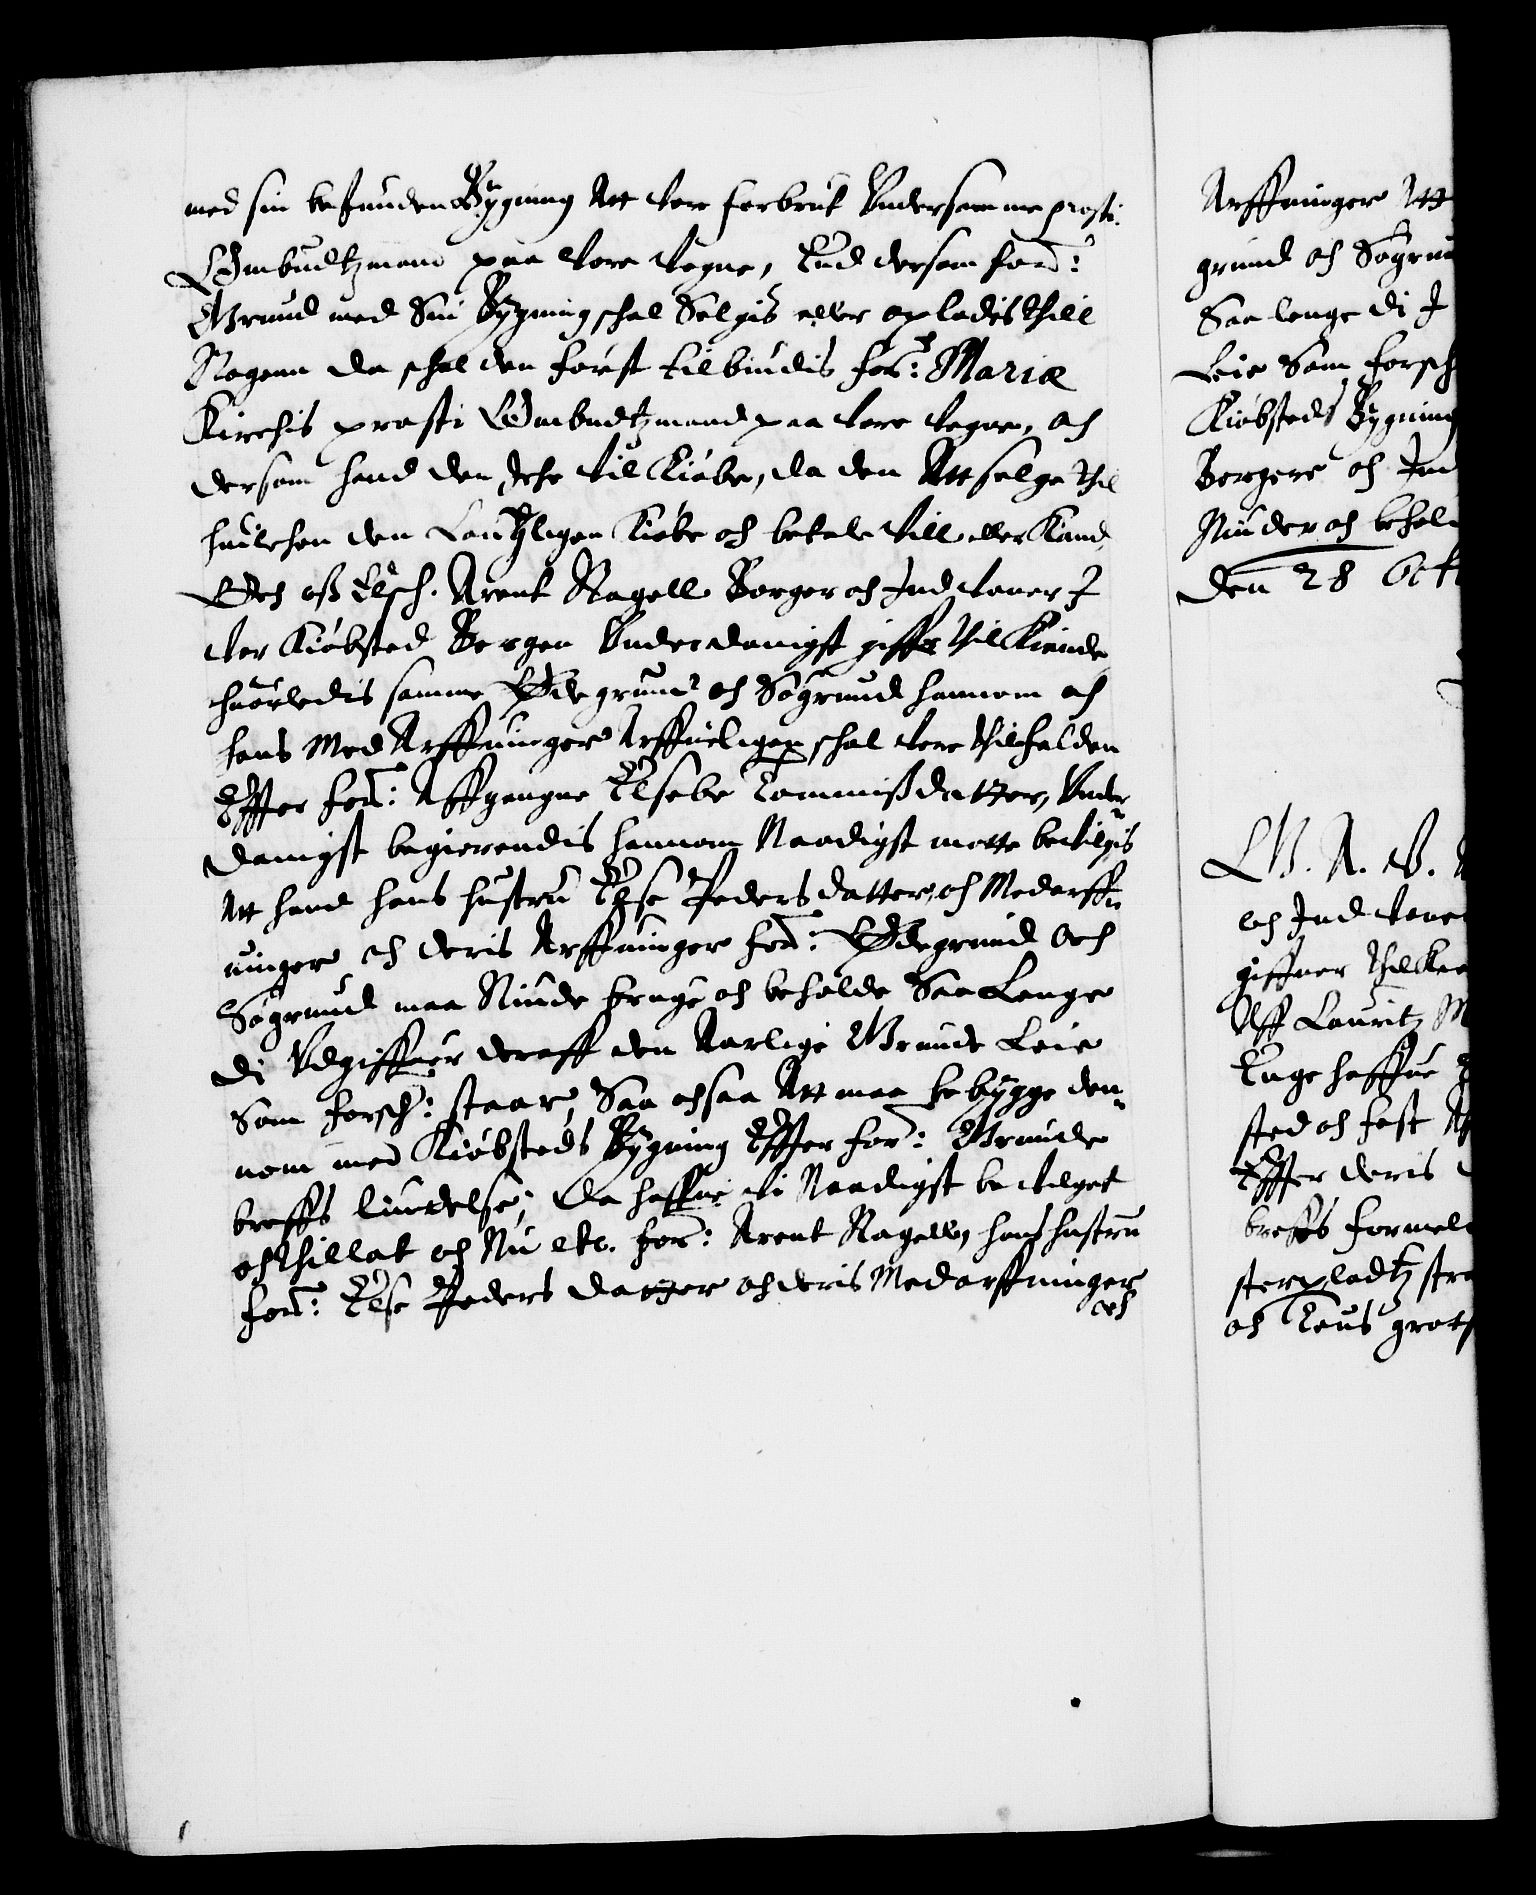 med sin befunden Bygning Att vere forbrut Under samme prosti
Ombudtzmand paa vore vegne, End dersom for:ne
Grund med Sin Bygning schal Selgis eller opladis thill
Nogenn da schal den først tilbiudis for:ne Mariæ
Kirchis prosti Ombudtzmand paa vore vegne, och
dersom hand den Iche vil Kiøbe, da den Att selge thil
huilchen den Louligen Kiøbe och betale vill eller Kand,
Och oss Elsch. Arent Nagell Borger och Indvaner I
vor Kiøbsted Bergen Underdanigst giffr thilKiende
huorledis samme Ødegrund och Søgrund hannom och
hans Med Arffuinger Arffueligen schal vere thilfalden
Effter for:ne Affgangne Elsebe Tommissdatter, Under
danigst begierendis hannom Naadigst motte bevilgis
Att hand hans hustru Else Peders datter, och Medarff-
uinger och deris Arffuinger for:ne Ødegrund Och
Søgrund maa Niude bruge och beholde Saa Lenge
di Udgiffuer deraff den Aarlige Grunde Leie
Som forsch: staar, Saa ochsaa Att maa bebygge den-
nom med Kiøbsteds Bygning Effter for:ne Grunde
breffs liudelse, Da haffue Vi Naadigst bevilget
och thillat och Nu etc. for:ne Arent Nagell, hans hustru
for:ne Else Peders datter och deris Medarffuinger
och
Arffuinger Att
grund och Søgrun
Saa lenge di I
Leie Som forsch
Kiøbsteds Bygning
Borgere och Ind
Niude och behol
Den 28 Oct
G. A. V.
och Indvaner
giffuer thilKien
Aff Lauritz M
Enge haffue
sted och fest
Effter deris
breffs formel
sterpladtz stre
och Teus grots